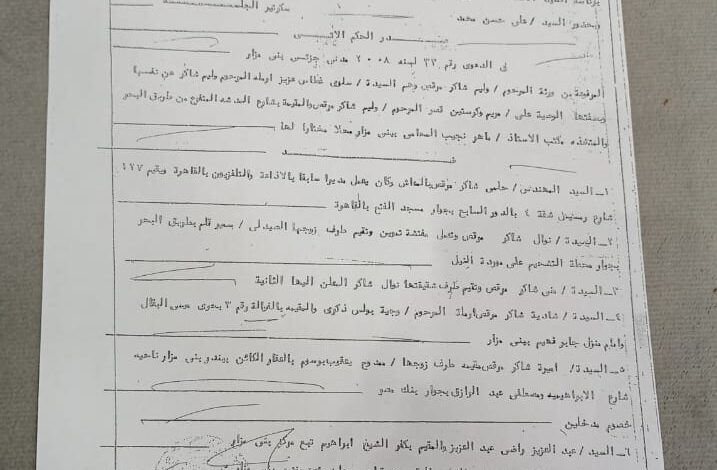 وبحضور السيد / على حسن محمد سكرتير الجلسة
صدر الحكم الاتى
فى الدعوى رقم ٣٣ لسنه ٢٠٠٨ مدنى جزئى بنى مزار
المرفوعة من ورثة المرحوم / وليم شاكر مرقص وهم السيدة / سلوى عزيز ارملة المرحوم وليم شاكر عن نفسها
وبصفتها الوصية على / مريم وكرستين قصر المرحوم / وليم شاكر مرقص والمقيمة بشارع المتفرع من طريق البحر
والمتخذه مكتب الاستاذ / ماهر نجيب المحامى ببنى مزار محلا مختارا لها
ضد
١ـ السيد المهندس / حلمى شاكر مرقص بالمعاش وكان يعمل مديرا سابقا بالاذاعة والتلفزيون بالقاهرة ويقيم ١٧٧
شارع رمسيس شقة ٤ بالدور السابع بجوار مسجد الفتح بالقاهرة
٢ـ السيدة / نوال شاكر مرقص وتعمل مفتشة تموين وتقيم طرف زوجها الصيدلى / سمير قلم بطريق البحر
بجوار محطة التشحيم على موردة النيل
٣ـ السيدة / منى شاكر مرقص وتقيم طرف شقيقتها نوال شاكر المعلن اليها الثانية
٤ـ السيدة / شادية شاكر مرقص ارملة المرحوم / وجية بولس ذكرى والمقيمه رقم ٣ بحوى عيسى البقال
وامام منزل جابر فهيم ببنى مزار
٥ـ السيدة / اميرة شاكر مرقص مقيمه طرف زوجها / ممدوح يعقوب بوسوم بالعقار الكائن ببندر بنى مزار ناحيه
شارع الابراهيميه ومصطفى عبد الرازق بجوار بنك مصر
خصوم مدخلين
٦ـ السيد / عبد العزيز راضى عبد العزيز والمقيم بكفر الشيخ ابراهيم تبع مركز بنى مزار